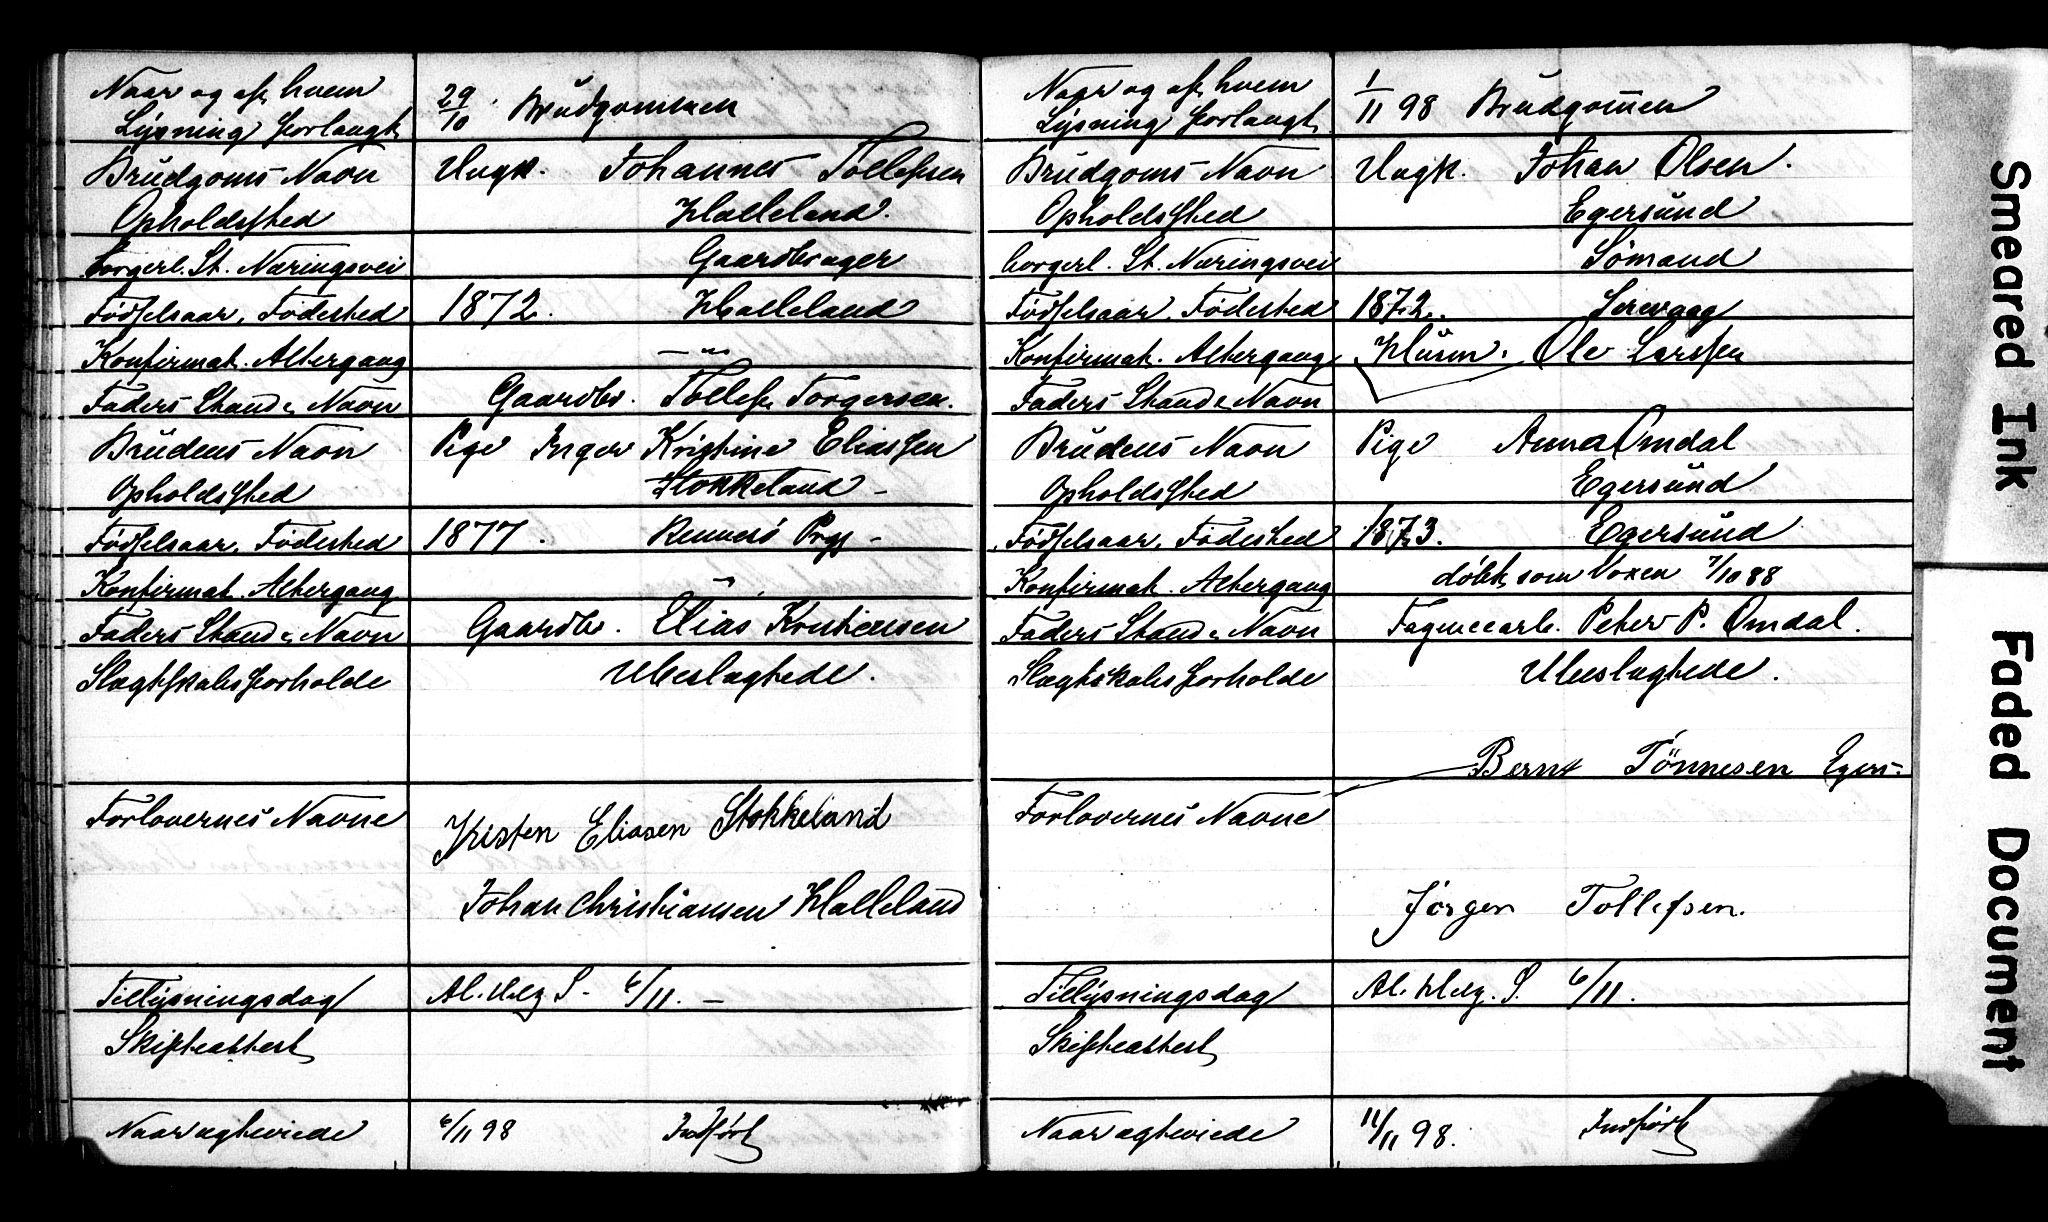 Naar og af hvem 29/10. Brudgommen
Lysning forlangt
Brudgoms Navn Ungk. Johannes Tollefsen
Opholdssted Hælleland.
borgerl. St. Næringsvei Gaardbruger
Födselsaar, Födested 1872. Hælleland
Konfirmat. Altergang —"—
Faders Stand & Navn Gaardbr. Tollef Torgersen.
Brudens Navn Pige Inger Kristine Eliassen
Opholdssted Stokkeland –
Födselsaar, Födested 1877. Rennesö Prgj –
Konfirmat. Altergang "
Faders Stand & Navn Gaardbr. Elias Kristensen
Slægtskabsforholde Ubeslægtede.
Forlovernes Navne Kristen Eliasen Stokkeland
Johan Christiansen Hælleland
Tillysningsdag Al. Helg. S. 6/11. –
Skifteattest
Naar ægteviede 6/11 98 Indført
Naar og af hvem 1/11 98 Brudgommen
Lysning forlangt
Brudgoms Navn Ungk. Johan Olsen.
Opholdssted Egersund
borgerl. St. Næringsvei Sömand
Födselsaar, Födested 1872. Sirevaag
Konfirmat. Altergang Husm. Ole Larssen
Faders Stand & Navn
Brudens Navn Pige Anna Omdal
Opholdssted Egersund
Födselsaar, Födested 1873. Egersund
Konfirmat. Altergang döbt som Voxen 7/10 88
Faders Stand & Navn Peter P. Omdal.
Slægtskabsforholde Ubeslægtede.
Bernt Tönnesen Egers.
Forlovernes Navne
Jörgen Tollefsen.
Tillysningsdag Al. Helg. S. 6/11.
Skifteattest
Naar ægteviede 11/11 98. Indført
Smeared Ink
Faded Document